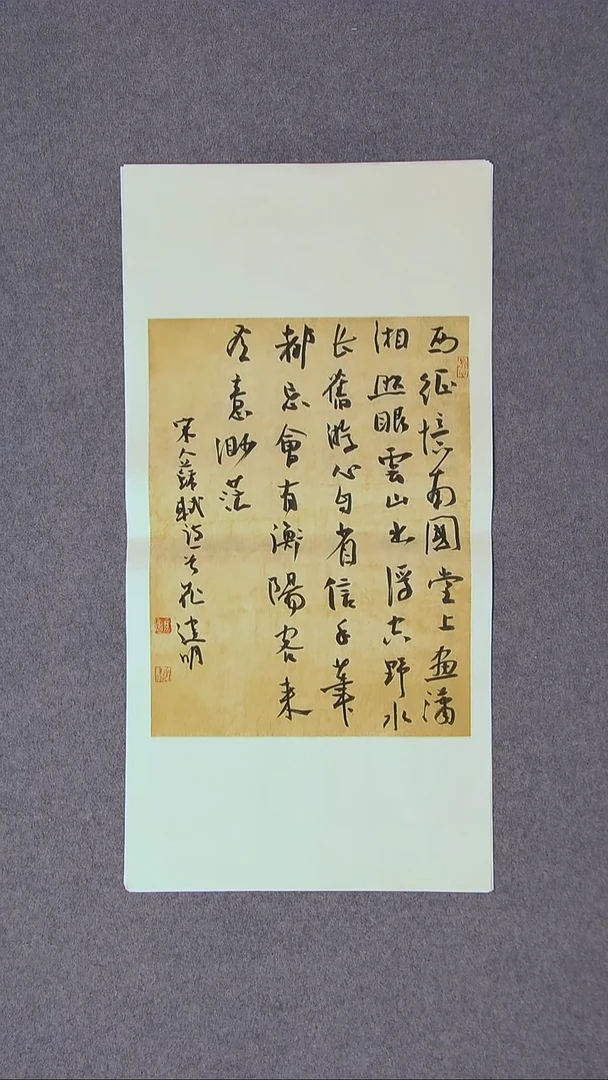 西征憶南國堂上畫瀟
湘照眼雲山出浮空野水
长舊游心自省信手筆
都忘會有衡陽客来
看意渺茫
宋人蘇軾詩一首 建明